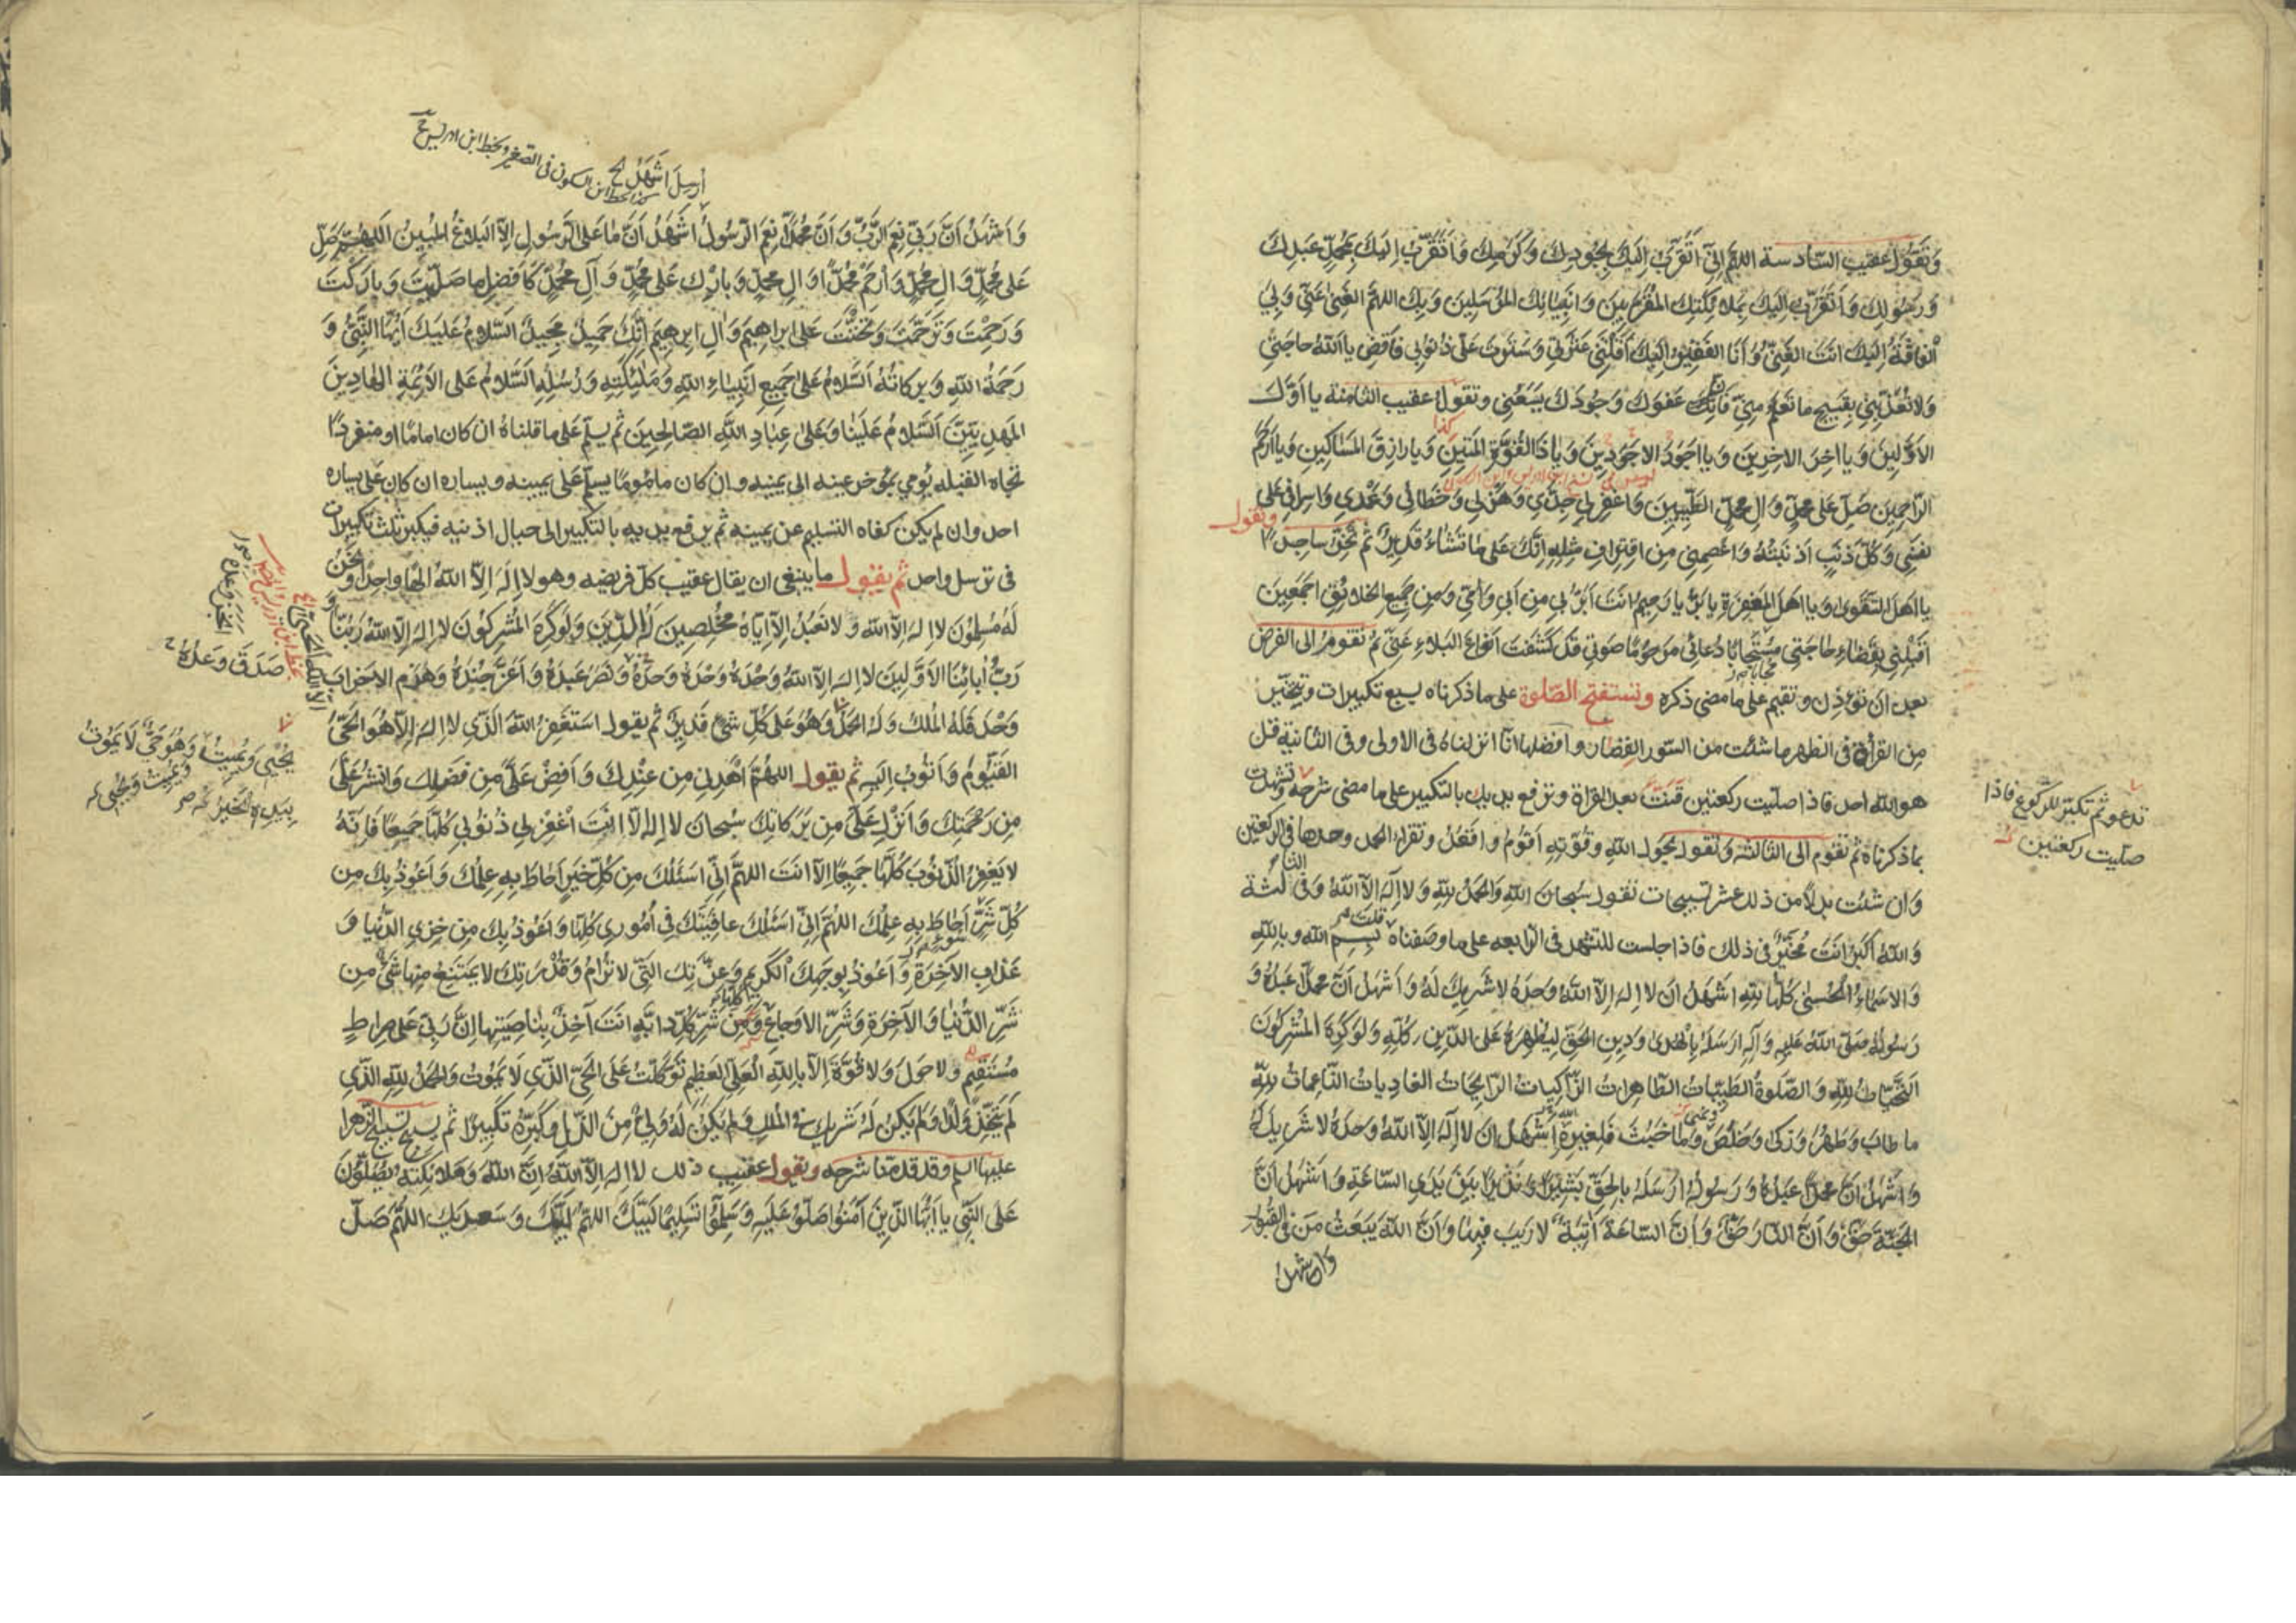 وَتَقُولُ عقيب السّادسة اللهمّ اِنّى اَتَقَرَّبُ اِلَيكَ بِجُودِكَ وَكَرَمِكَ وَاَتَقَرَّبُ اِلَيكَ بِمُحَمَّدٍ عَبدِكَ
وَرَسُولِكَ وَاَتَقَرَّبُ اِلَيكَ بِمَلائِكَتِكَ المُقَرَّبينَ وَاَنبِيائِكَ المُرسَلينَ وَبِكَ اللهمّ الغِنىٰ عَنّى وَبِىَ
الفاقَةُ اِلَيكَ اَنتَ الغَنِىُّ وَاَنَا الفَقيرُ اِلَيكَ اَقَلتَنى عَثرَتى وَسَتَرتَ عَلَىَّ ذُنُوبى فَاقضِ يا اَللهُ حاجَتى
وَلا تُعَذِّبنى بِقَبيحِ ما تَعلَمُ مِنّى فَاِنَّ عَفوَكَ وَجُودَكَ يَسَعُنى وتقولُ عقيب الثامنة يا اَوَّلَ
الاَوَّلينَ وَيا اخِرَ الاخِرينَ وَيا اَجوَدَ الاَجوَدينَ وَيا ذَا القُوَّةِ المَتينَ وَيا رازِقَ المَساكينِ وَيا اَرحَمَ
كذا
الرّاحِمينَ صَلِّ عَلى محمّدٍ وَالِ محمّدٍ الطَّيِّبينَ وَاغفِر لى جِدّى وَهَزلى وَخَطائى وَعَمدى وَاِسرافى عَلى
نفسى وَكُلَّ ذَنبٍ اَذنَبتُهُ وَاعصِمنى مِن اقتِرافِ مِثلِهِ اِنَّكَ عَلى ما تَشاءُ قَديرٌ ثُمّ تَخِرُّ ساجِداً
وتقول
يا اَهلَ التَّقوىٰ وَيا اَهلَ المَغفِرَةِ يا بَرُّ يا رَحيمُ اَنتَ اَبَرُّ بى مِن اَبى وَاُمّى وَمِن جَميعِ الخَلائِقِ اَجمَعينَ
اقلِبنى بِقَضاءِ حاجَتى مُستَجاباً دُعائى مَرحُومًا صَوتى قَد كَشَفتَ اَنواعَ البَلاءِ عَنّى ثم تقوم الى الفرض
بعد ان تؤذن وتقيم على ما مضى ذكره وتستفتح الصّلوة على ما ذكرناه بسبع تكبيرات وتتخيّر
مِن القرآن فى الظهر ما شئت من السّور القصار وافضلها انّا انزلناه فى الاولى وفى الثانية قل
هو الله احد فاذا صلّيت ركعتين قنتّ بعد القراة وترفع يديك بالتكبير على ما مضى شرحه وتشهدت
تدعو ثم تكبّر للركوع فاذا
صلّيت ركعتين
بما ذكرناه ثم تقوم الى الثالثة وتقول بحول الله وقوّته اقوم واقعد وتقراء الحمد وحدها فى الركعتين
وان شئت بدلاً من ذلك عشر تسبيحات تقول سُبحان اللهِ وَالحَمدُ لِلّهِ وَلا اِلٰهَ اِلاَّ اللهُ وفى الثالثة
وَاللهُ اَكبَرُ انت مُخيّر فى ذلك فاذا جلست للتشهد فى الرّابعه على ما وصفناه قلت بِسمِ اللهِ وبِاللهِ
وَالاَسماءُ الحُسنىٰ كُلُّها لِلّهِ اَشهَدُ اَن لا اِلهَ اِلاَّ اللهُ وَحدَهُ لا شَريكَ لَهُ وَاَشهَدُ اَنَّ محمّداً عَبدُهُ وَ
رَسُولُهُ صَلَّى اللهُ عَلَيهِ وَآلِهِ اَرسَلَهُ بِالهُدىٰ وَدينِ الحَقِّ لِيُظهِرَهُ عَلَى الدّينِ كُلِّهِ وَلَو كَرِهَ المُشرِكُونَ
اَلتَّحِيّاتُ لِلّهِ وَالصَّلَوةُ الطَّيِّباتُ الطّاهِراتُ الزّاكِياتُ الرّايِحاتُ الغادِياتُ النّاعِماتُ لِلّهِ
ما طابَ وَطَهُرَ وَزَكىٰ وَخَلُصَ وَما خَبُثَ فَلِغَيرِ اللهِ اَشهَدُ اَن لا اِلٰهَ اِلاَّ اللهُ وَحدَهُ لا شَريكَ لَهُ
وَاَشهَدُ اَنَّ محمّداً عَبدُهُ وَرَسُولُهُ اَرسَلَهُ بِالحَقِّ بَشيراً وَنَذيراً بَينَ يَدَىِ السّاعَةِ وَاَشهَدُ اَنَّ
الجَنَّةَ حَقٌّ وَاَنَّ النّارَ حَقٌّ وَاَنَّ السّاعَةَ اتِيَةٌ لا رَيبَ فيها وَاَنَّ اللهَ يَبعَثُ مَن فى القُبُورِ
واشهد
اُرسِلَ اَشهَدُ
كذا بخط ابن السكون فى الصغير وبخط ابن ادريس
وَاَشهَدُ اَنَّ رَبّى نِعمَ الرَّبُّ وَاَنَّ محمّداً نِعمَ الرَّسُولُ اَشهَدُ اَنَّ ما عَلَى الرَّسُولِ اِلاَّ البَلاغُ المُبينُ اَللّهُمَّ صَلِّ
عَلى محمّدٍ وَالِ محمّدٍ وَارحَم محمّداً وَالَ محمّدٍ وَبارِك عَلى محمّدٍ وَآلِ محمّدٍ كَاَفضَلِ ما صَلَّيتَ وَبارَكتَ
وَرَحِمتَ وَتَرَحَّمتَ وَتَحَنَّنتَ عَلى ابراهيمَ وَالِ ابرهيمَ اِنَّكَ حَميدٌ مَجيدٌ اَلسَّلامُ عَلَيكَ اَيُّهَا النَّبِىُّ وَ
رَحمَةُ اللهِ وَبَرَكاتُهُ اَلسَّلامُ عَلى جَميعِ اَنبِياءِ اللهِ وَمَلٰئِكَتِهِ وَرُسُلِهِ اَلسَّلامُ عَلَى الاَئِمَّةِ الهادينَ
المَهدِيّينَ اَلسَّلامُ عَلَينا وَعَلىٰ عِبادِ اللهِ الصّالِحينَ ثم يسلّم على ما قلناه ان كان اماماً او منفرداً
تجاه القبله يُومِى بمُؤخر عينه الى يمينه وان كان مامُوماً يسلّم على يمينه ويساره ان كان على يساره
احد وان لم يكن كفاه التسليم عن يمينه ثم يرفع يديه بالتكبير الى حيال اذنيه فيكبر ثلث تكبيرات
فى ترسل واحد ثم يقول ما ينبغى ان يقال عقيب كلّ فريضه وهو لا اِلهَ اِلاَّ اللهُ اِلٰهاً واحِداً وَنَحنُ
لَهُ مُسلِمُونَ لا اِلهَ اِلاَّ الله وَلا نَعبُدُ اِلاّ اِيّاهُ مُخلِصينَ لَهُ الدّينَ وَلَو كَرِهَ المُشرِكُونَ لا اِلهَ اِلاَّ اللهُ رَبُّنا وَ
رَبُّ آبائِنَا الاَوَّلينَ لا اِلهَ اِلاَّ اللهُ وَحدَهُ وَحدَهُ وَحدَهُ وَنَصَرَ عَبدَهُ وَاَعَزَّ جُندَهُ وَهَزَمَ الاَحزابَ
انجز وعده
صَدَقَ وَعدَهُ
وَحدَهُ فَلَهُ المُلكُ وَلَهُ الحَمدُ وَهُوَ عَلى كُلِّ شَىءٍ قَديرٌ ثم يقول اَستَغفِرُ اللهَ الَّذى لا اِلهَ اِلاّ هُوَ الحَىُّ
يُحيى وَيُميتُ وَهُوَ حَىٌّ لا يَمُوتُ
وَيُميتُ وَيُحيى
بِيَدِهِ الخَيرُ
القَيُّومُ وَاَتُوبُ اِلَيهِ ثم يقول اللهمّ اهدِنى مِن عِندِكَ وَاَفِض عَلَىَّ مِن فَضلِكَ وَانشُر عَلَىَّ
مِن رَحمَتِكَ وَاَنزِل عَلَىَّ مِن بَرَكاتِكَ سُبحانَ لا اِلهَ اِلاّ اَنتَ اغفِر لى ذُنُوبى كُلَّها جَميعاً فَاِنَّهُ
لا يَغفِرُ الذُّنُوبَ كُلَّها جَميعاً اِلاّ اَنتَ اللهمّ اِنّى اَسئَلُكَ مِن كُلِّ خَيرٍ اَحاطَ بِهِ عِلمُكَ وَاَعُوذُ بِكَ مِن
كُلِّ شَرٍّ اَحاطَ بِهِ عِلمُكَ اللهمّ اِنّى اَسئَلُكَ عافِيَتَكَ فى اُمُورى كُلِّها وَاَعُوذُ بِكَ مِن خِزىِ الدُّنيا وَ
عَذابِ الآخِرَةِ وَاَعُوذُ بِوَجهِكَ الكَريمِ وَعِزَّتِكَ الَّتى لا تُرامُ وَقُدرَتِكَ لا يَمتَنِعُ مِنها شَىءٌ مِن
شَرِّ الدُّنيا وَالآخِرَةِ وَشَرِّ الاَوجاعِ وَمِن شَرِّ كُلِّ دابَّةٍ اَنتَ آخِذٌ بِناصِيَتِها اِنَّ رَبّى عَلى صِراطٍ
مُستَقيمٍ وَلا حَولَ وَلا قُوَّةَ اِلاّ بِاللهِ العَلِىِّ العَظيمِ تَوَكَّلتُ عَلَى الحَىِّ الَّذى لا يَمُوتُ وَالحَمدُ لِلّهِ الَّذى
لَم يَتَّخِذ وَلَداً وَلَم يَكُن لَهُ شَريكٌ فى المُلكِ وَلَم يَكُن لَهُ وَلِىٌّ مِنَ الذُّلِّ وَكَبِّرهُ تَكبيراً ثم يسبح تسبيح الزهرا
عليها السلم وقد قدمنا شرحه ويقول عقيب ذلك لا اِلهَ اِلاَّ اللهُ اِنَّ اللهَ وَمَلائِكَتَهُ يُصَلُّونَ
عَلَى النَّبِىِّ يا اَيُّهَا الَّذينَ آمَنُوا صَلُّوا عَلَيهِ وَسَلِّمُوا تَسليماً لَبَّيكَ اللهمّ لَبَّيكَ وَسَعدَيكَ اللهمّ صَلِّ